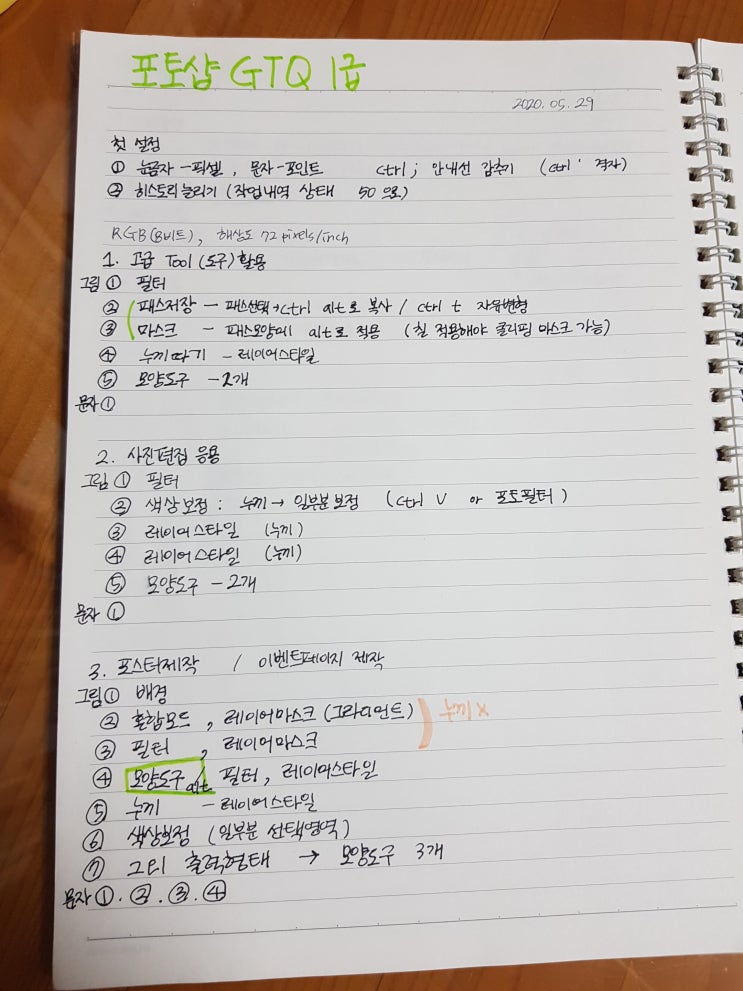 포토샵 GTQ 1급
2020. 05. 29
첫 설정
① 눈금자 - 픽셀, 문자 - 포인트 ctrl ; 안내선 감추기 (ctrl ' 격자)
② 히스토리 늘리기 (작업내역 상태 50 으로)
RGB(8비트), 해상도 72 pixels/inch
1. 고급 Tool (도구) 활용
그림 ① 필터
② 패스저장 - 패스선택 → ctrl alt로 복사 / ctrl t 자유변형
③ 마스크 - 패스모양에 alt로 적용 (칠 적용해야 클리핑 마스크 가능)
④ 누끼따기 - 레이어스타일
⑤ 모양도구 - 2개
문자 ①
2. 사진편집 응용
그림 ① 필터
② 색상보정 : 누끼 → 일부분 보정 (ctrl U or 포토필터)
③ 레이어스타일 (누끼)
④ 레이어스타일 (누끼)
⑤ 모양도구 - 2개
문자 ①
3. 포스터제작 / 이벤트페이지 제작
그림 ① 배경
② 혼합모드, 레이어마스크 (그라디언트)
③ 필터, 레이어마스크
누끼 X
④ 모양도구 alt / 필터, 레이어스타일
⑤ 누끼 - 레이어스타일
⑥ 색상보정 (일부분 선택영역)
⑦ 그외 출력형태 → 모양도구 3개
문자 ① . ② . ③ . ④